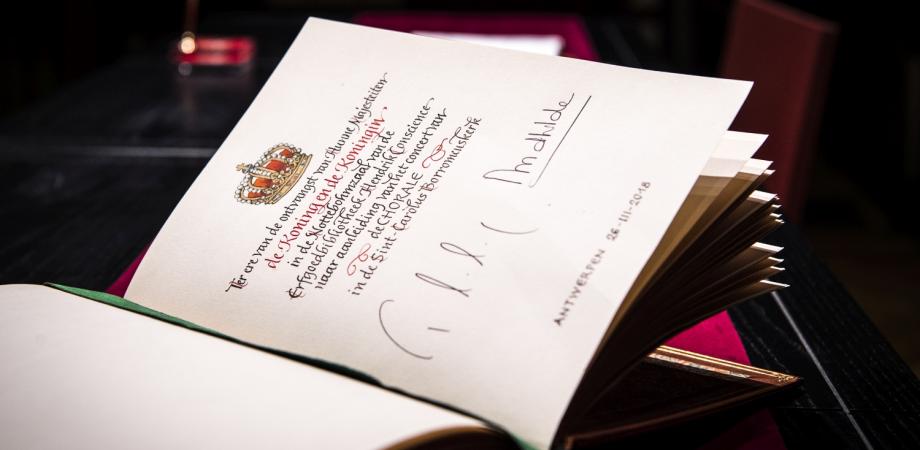 Ter ere van de ontvangst van Hunne Majesteiten
de Koning en de Koningin
in de Nottebohmzaal van de
Erfgoedbibliotheek Hendrik Conscience
naar aanleiding van het concert van
de CHORALE
in de Sint-Carolus Borromeuskerk
Mathilde
ANTWERPEN 26-III-2018